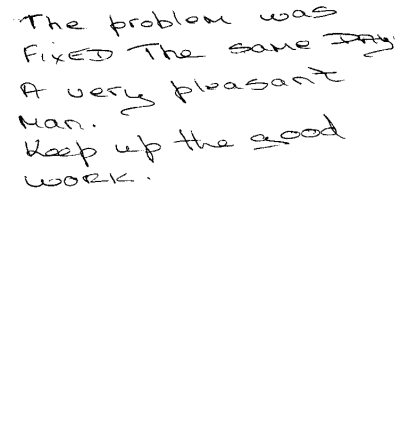 The problem was
FixED The same DAy.
A very pleasant
Man.
Keep up the good
work.